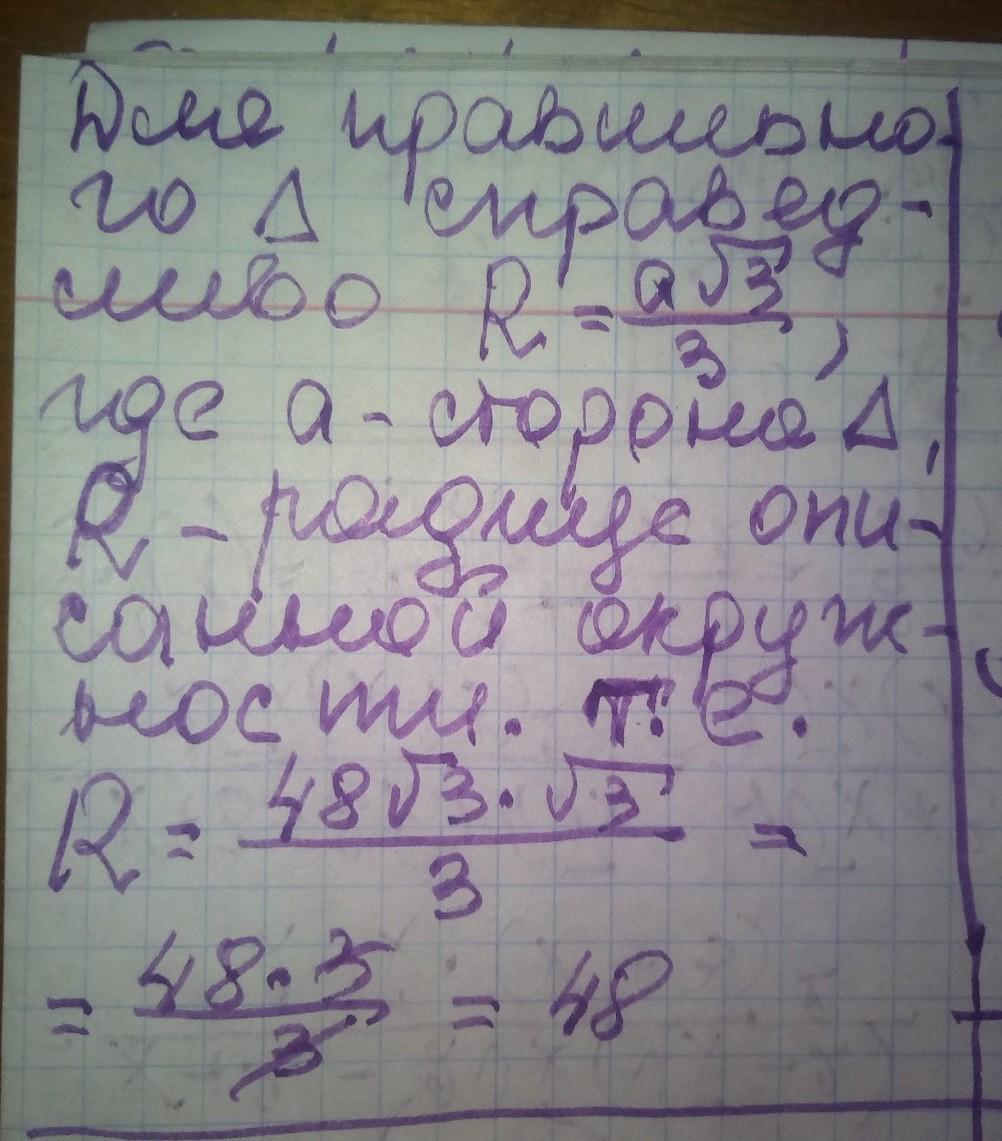 Для правильно-
го Δ справед-
ливо R = a√3/3,
где a - сторона Δ,
R - радиус опи-
санной окруж-
ности. Т.е.
R = 48√3·√3/3 =
= 48·3/3 = 48